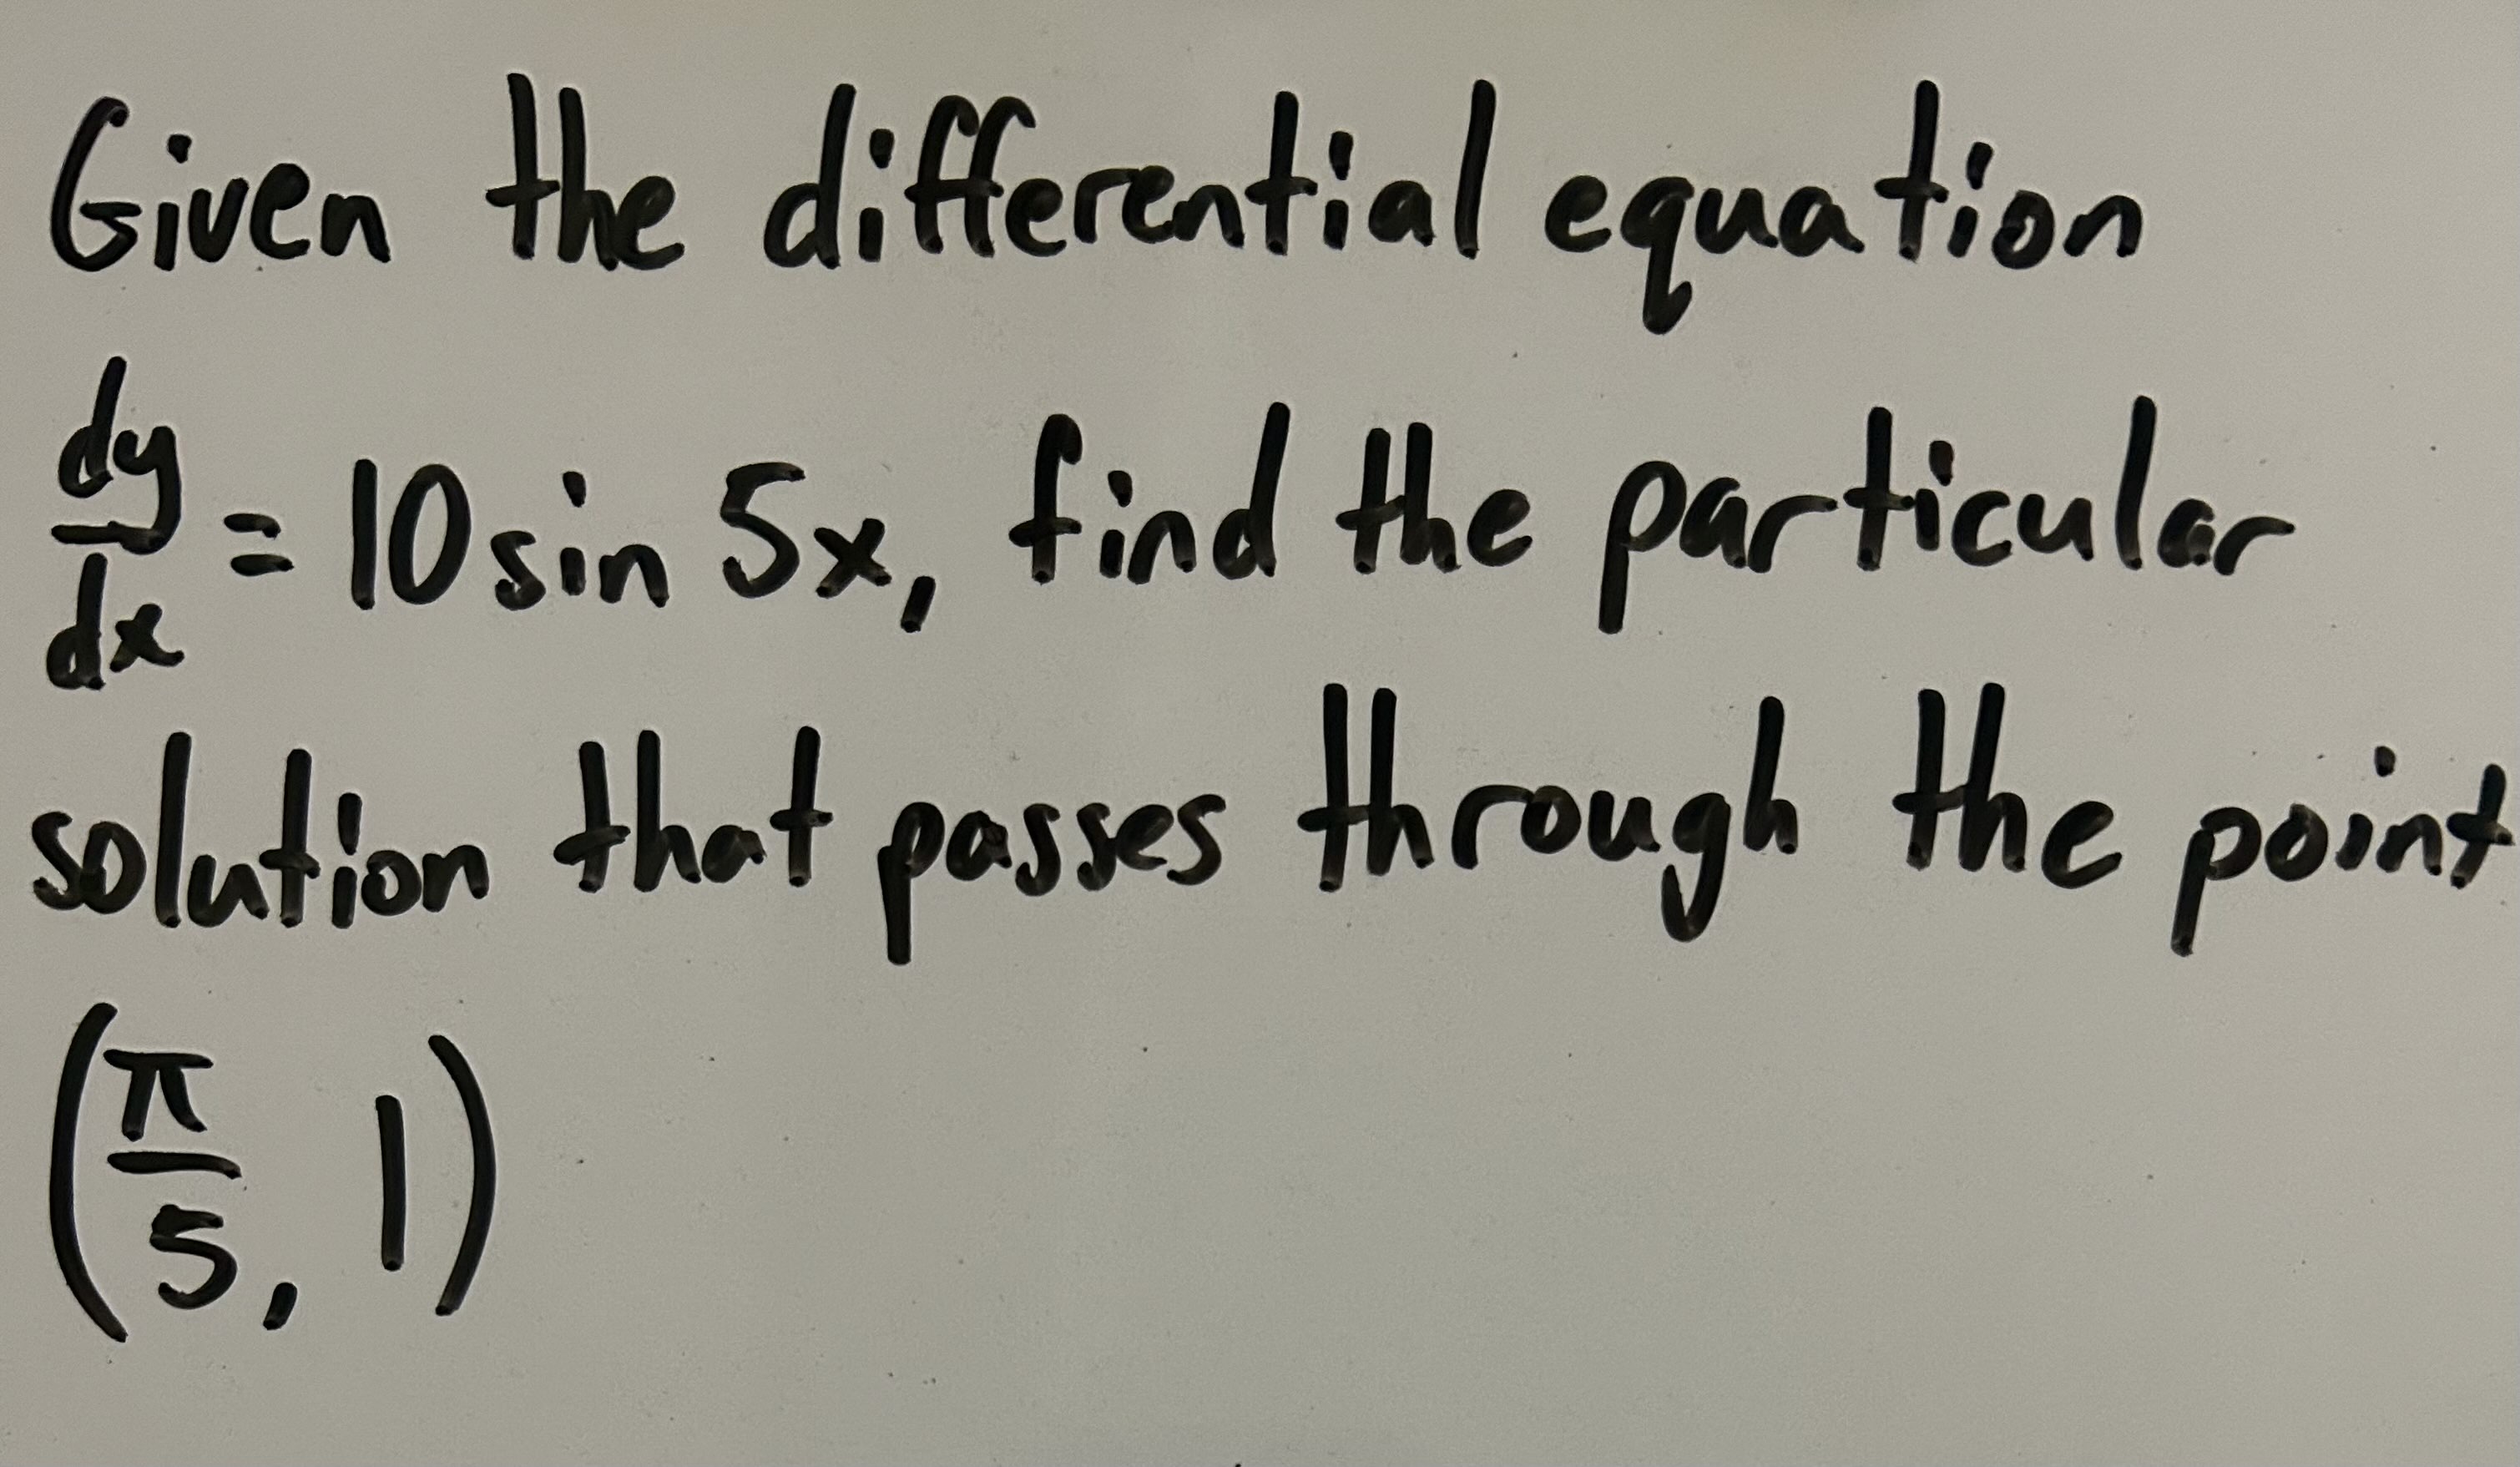 Given the differential equation
dy/dx = 10 sin 5x, find the particular
solution that passes through the point
(π/5, 1)